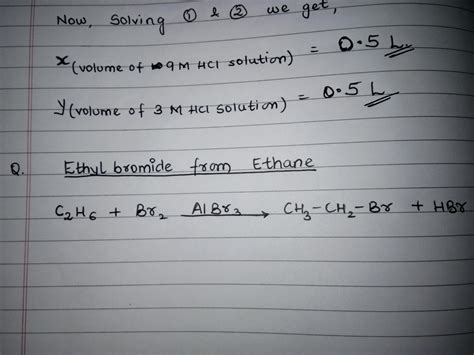 Now, Solving ① & ② we get,
x (volume of 9 M HCl solution) = 0.5 L
y (volume of 3 M HCl solution) = 0.5 L
Q. Ethyl bromide from Ethane
C₂H₆ + Br₂ AlBr₃ → CH₃-CH₂-Br + HBr